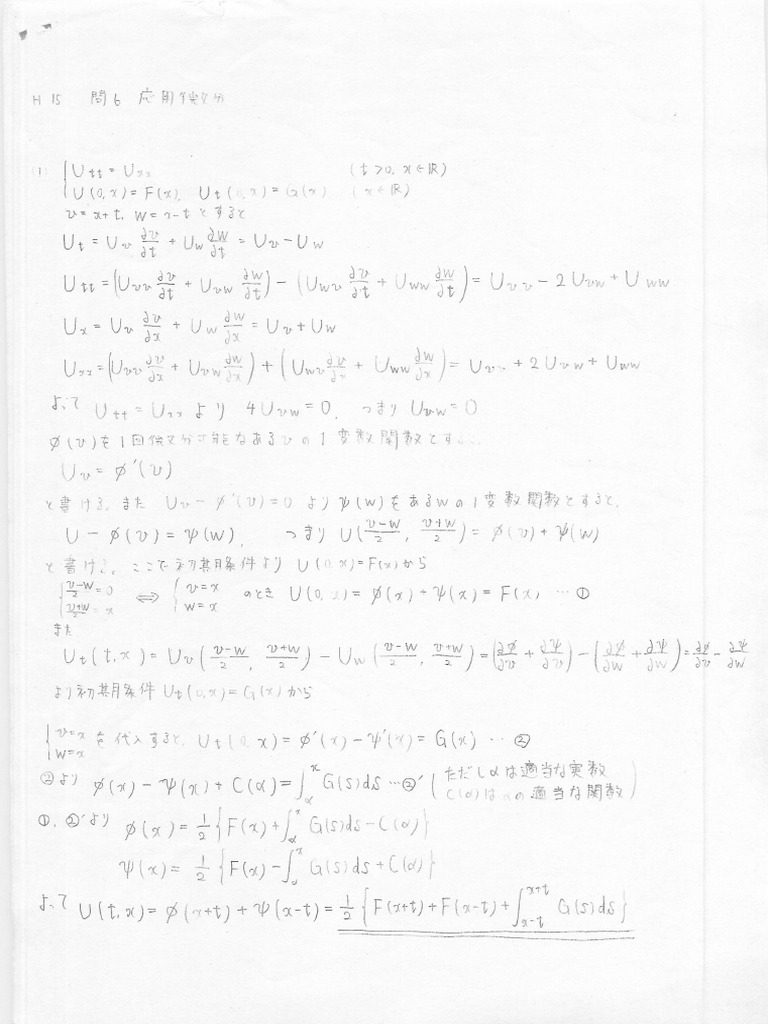 H 15 問6 応用微分
(1) { Utt = Uxx (t>0, x∈ℝ)
U(0,x) = F(x), Ut(0,x) = G(x) (x∈ℝ)
v=x+t, w=x-t とすると
Ut = Uv ∂v/∂t + Uw ∂w/∂t = Uv - Uw
Utt = (Uvv ∂v/∂t + Uvw ∂w/∂t) - (Uwv ∂v/∂t + Uww ∂w/∂t) = Uvv - 2Uvw + Uww
Ux = Uv ∂v/∂x + Uw ∂w/∂x = Uv + Uw
Uxx = (Uvv ∂v/∂x + Uvw ∂w/∂x) + (Uwv ∂v/∂x + Uww ∂w/∂x) = Uvv + 2Uvw + Uww
よって Utt = Uxx より 4Uvw = 0, つまり Uvw = 0
φ(v)を1回微分可能なあるvの1変数関数とする
Uv = φ'(v)
と書ける。また Uv - φ'(v) = 0 より ψ(w)をあるwの1変数関数とすると,
U - φ(v) = ψ(w), つまり U((v-w)/2, (v+w)/2) = φ(v) + ψ(w)
と書ける。ここで初期条件より U(0,x)=F(x)から
{ (v-w)/2 = 0, (v+w)/2 = x ⇔ { v=x, w=x のとき U(0,x) = φ(x) + ψ(x) = F(x) … ①
また
Ut(t,x) = Uv((v-w)/2, (v+w)/2) - Uw((v-w)/2, (v+w)/2) = (∂φ/∂v + ∂ψ/∂v) - (∂φ/∂w + ∂ψ/∂w) = ∂φ/∂v - ∂ψ/∂w
より初期条件 Ut(0,x) = G(x) から
{ v=x, w=x を代入すると, Ut(0,x) = φ'(x) - ψ'(x) = G(x) … ②
②より φ(x) - ψ(x) + C(α) = ∫_α^x G(s)ds …②' (ただしαは適当な実数
C(α)はαの適当な関数)
①, ②'より φ(x) = 1/2 {F(x) + ∫_α^x G(s)ds - C(α)}
ψ(x) = 1/2 {F(x) - ∫_α^x G(s)ds + C(α)}
よって U(t,x) = φ(x+t) + ψ(x-t) = 1/2 {F(x+t) + F(x-t) + ∫_{x-t}^{x+t} G(s)ds}